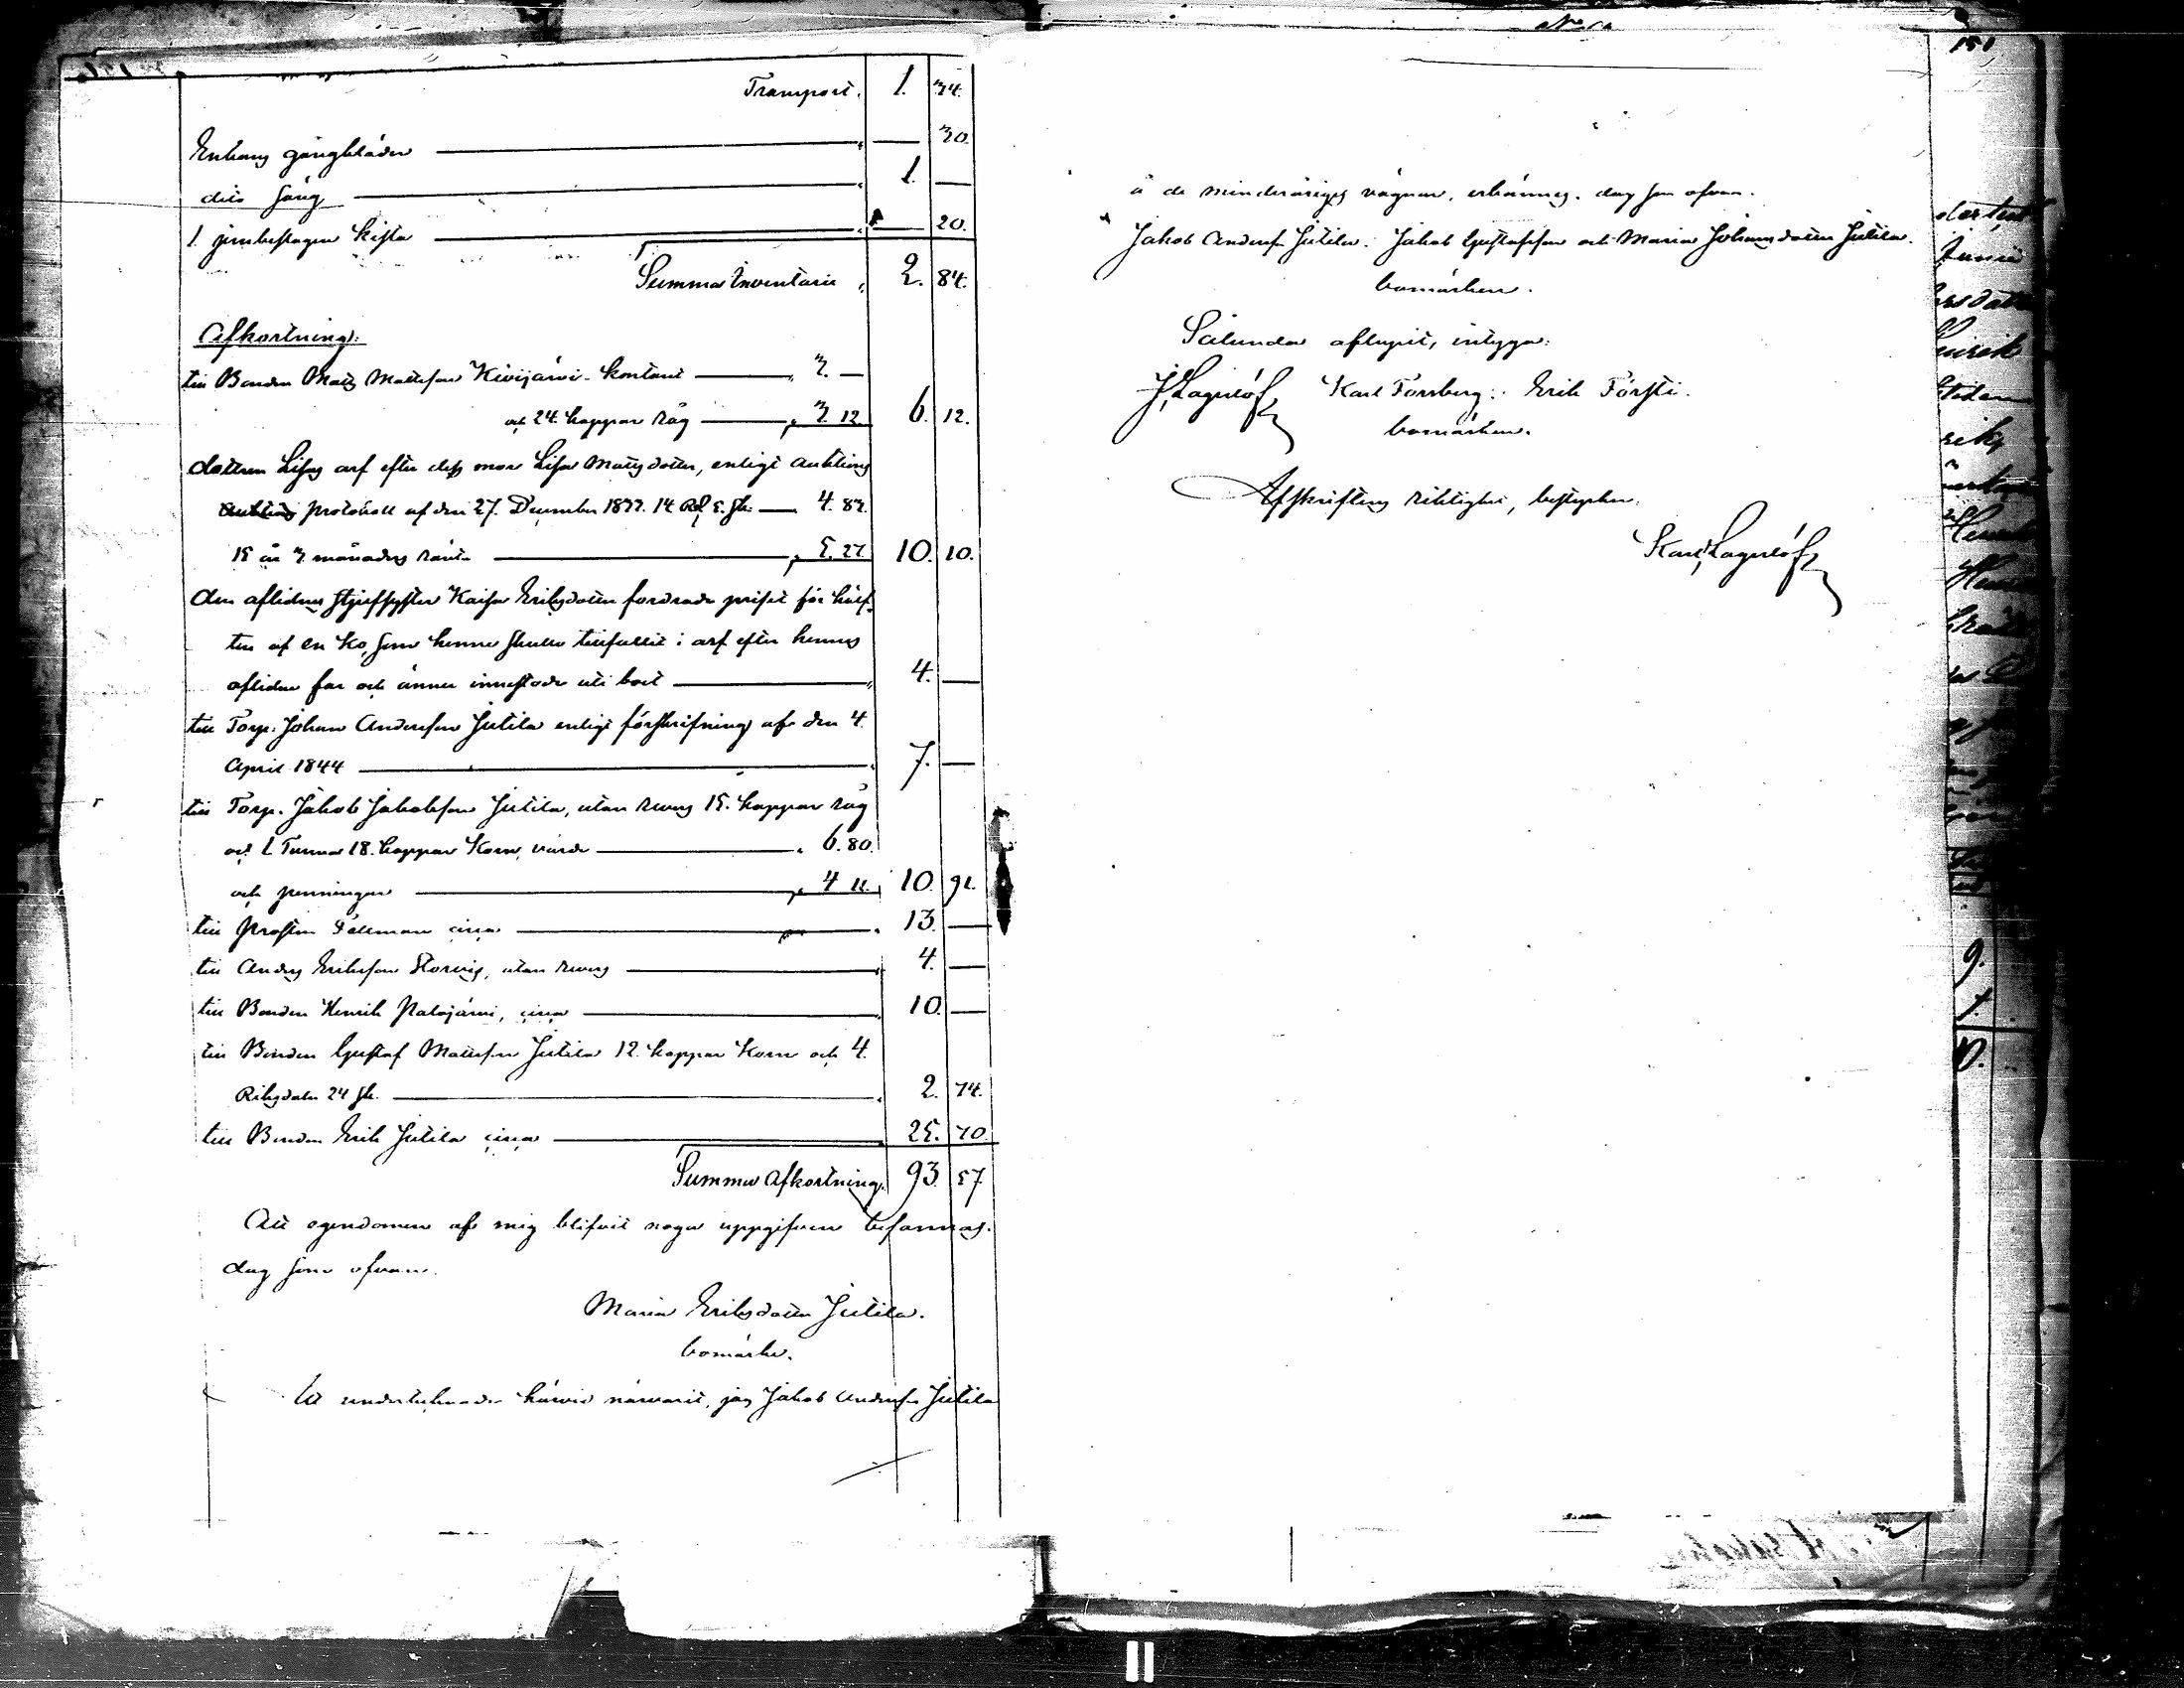 Transport. 1. 34.
Enkans gångkläder — 30.
dito säng 1. —
1 jernbeslagen kista — 20.
Summa Inventarie 2. 84.
Afkortning:
till Bonden Matts Mattsson Kivijärvi kontant 3. —
och 24 kappar råg 3. 12. 6. 12.
dottren Lisas arf efter dess mor Lisa Mattsdotter, enligt auktions
protokoll af den 27. December 1833. 14 Rd. 5. sk. 4. 83.
15 år 3 månaders ränta 5. 27. 10. 10.
den aflidnes styfsyster Kaisa Eriksdotter fordrade priset för hälf-
ten af en Ko, som henne skulle tillfallit i arf efter hennes
aflidne far och ännu innestode uti boet 4. —
till Torp. Johan Andersson Jutila enligt förskrifning af den 4.
April 1844 7. —
till Torp. Jakob Jakobsson Jutila, utan revers 15. kappar råg
och 1 Tunna 18. kappar Korn, värde 6. 80.
och penningar 4 11. 10. 91.
till Prosten Fellman cirka 13. —
till Anders Eriksson Storvig, utan revers 4. —
till Bonden Henrik Palojärvi, cirka 10. —
till Bonden Gustaf Mattsson Jutila 12. kappar Korn och 4.
Riksdaler 24 sk. 2. 74.
till Bonden Erik Jutila cirka 25. 70.
Summa Afkortning. 93. 57.
Att egendomen af mig blifvit noga uppgifven befannas.
dag som ofvan.
Maria Eriksdotter Jutila.
bomärke.
At undertecknade härvid närvarit, jag Jakob Andersson Jutila
151
å de minderårigas vägnar, erkännes. dag som ofvan.
Jakob Andersson Jutila. Jakob Gustafsson och Maria Johansdotter Jutila.
bomärken.
Sålunda aflupit, intyga:
J. Lagerlöf Karl Forsberg: Erik Försti.
bomärken.
Afskriftens riktighet, bestyrker:
Karl Lagerlöf